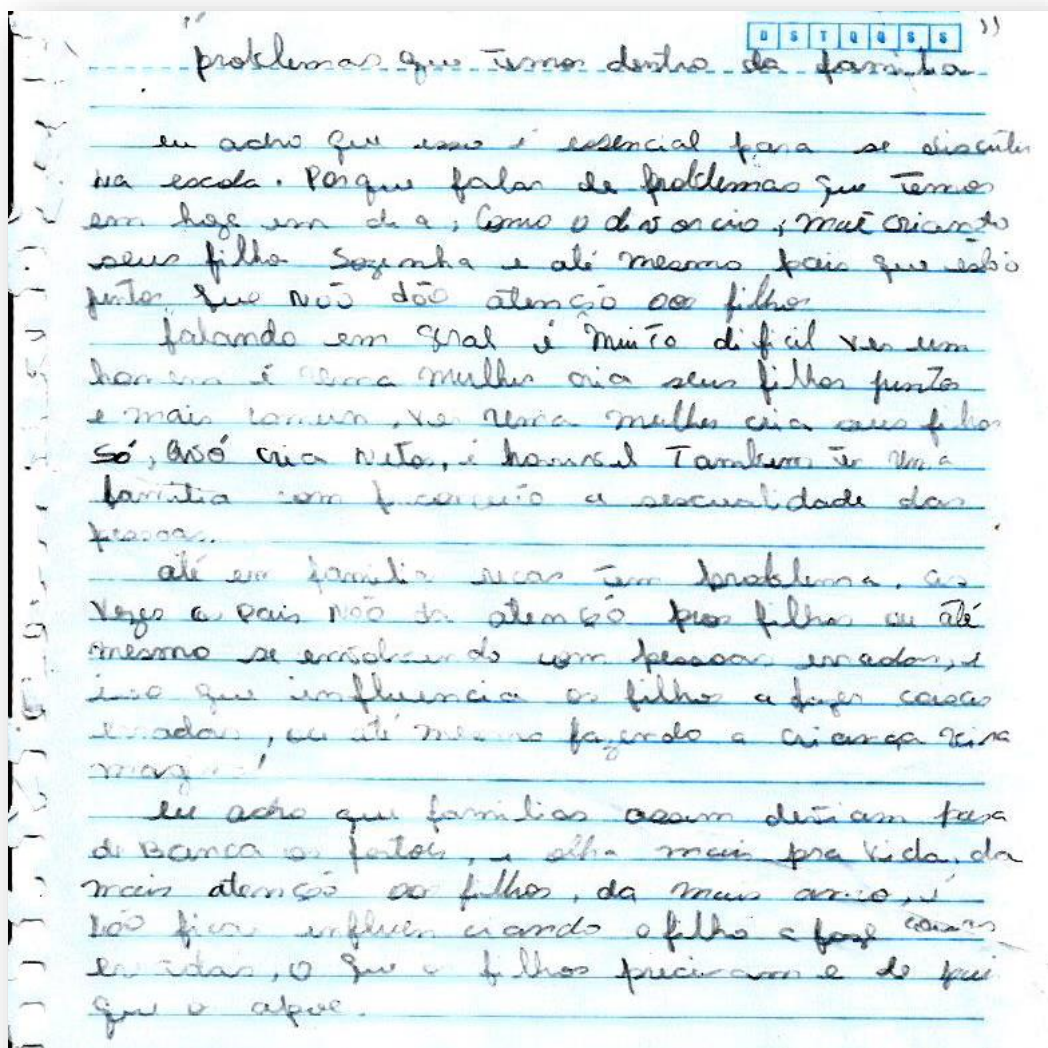 D S T Q Q S S
"problemas que temos dentro da familia"
eu acho que isso é essencial para se discutir
na escola. Porque falar de problemas que temos
em hoge em dia, Como o divorcio, mãe criando
seus filho Sozinha e até mesmo pais que estão
juntos que não dão atenção aos filhos
falando em geral é muito dificil ver um
homem é uma mulher cria seus filhos juntos
e mais comum, ver uma mulher cria seus filhos
só, avó cria netos, é horrivel Tambem ter uma
familia com a sescualidade das
pessoas.
até em familia ricas tem problema. as
vezes o pais não da atenção pros filhos ou até
mesmo se envolvendo com pessoas erradas, é
isso que influencia os filho a fazer coisas
erradas, ou até mesmo fazendo a criança vira
eu acho que familias assim deviam para
de Banca os , e olha mais pra vida, da
mais atenção ao filhos, da mais , é
não fica influenciando o filho a faze coisas
erradas, o que o filhos precisam e de pai
que o apoie.